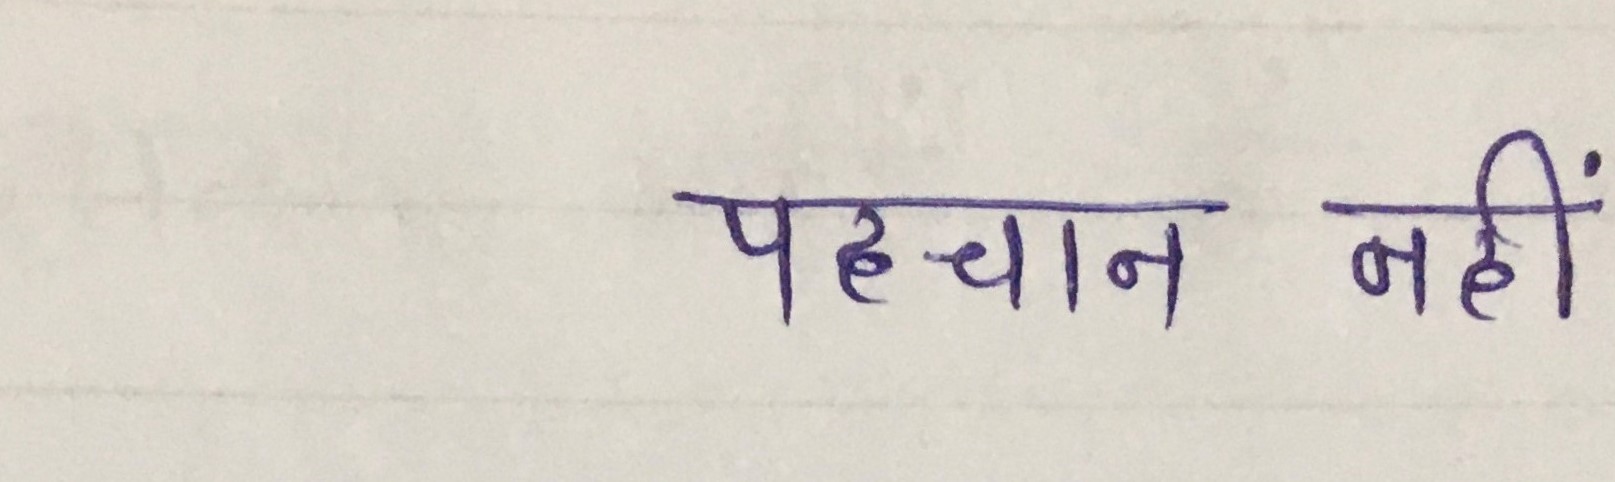 पहचान नहीं